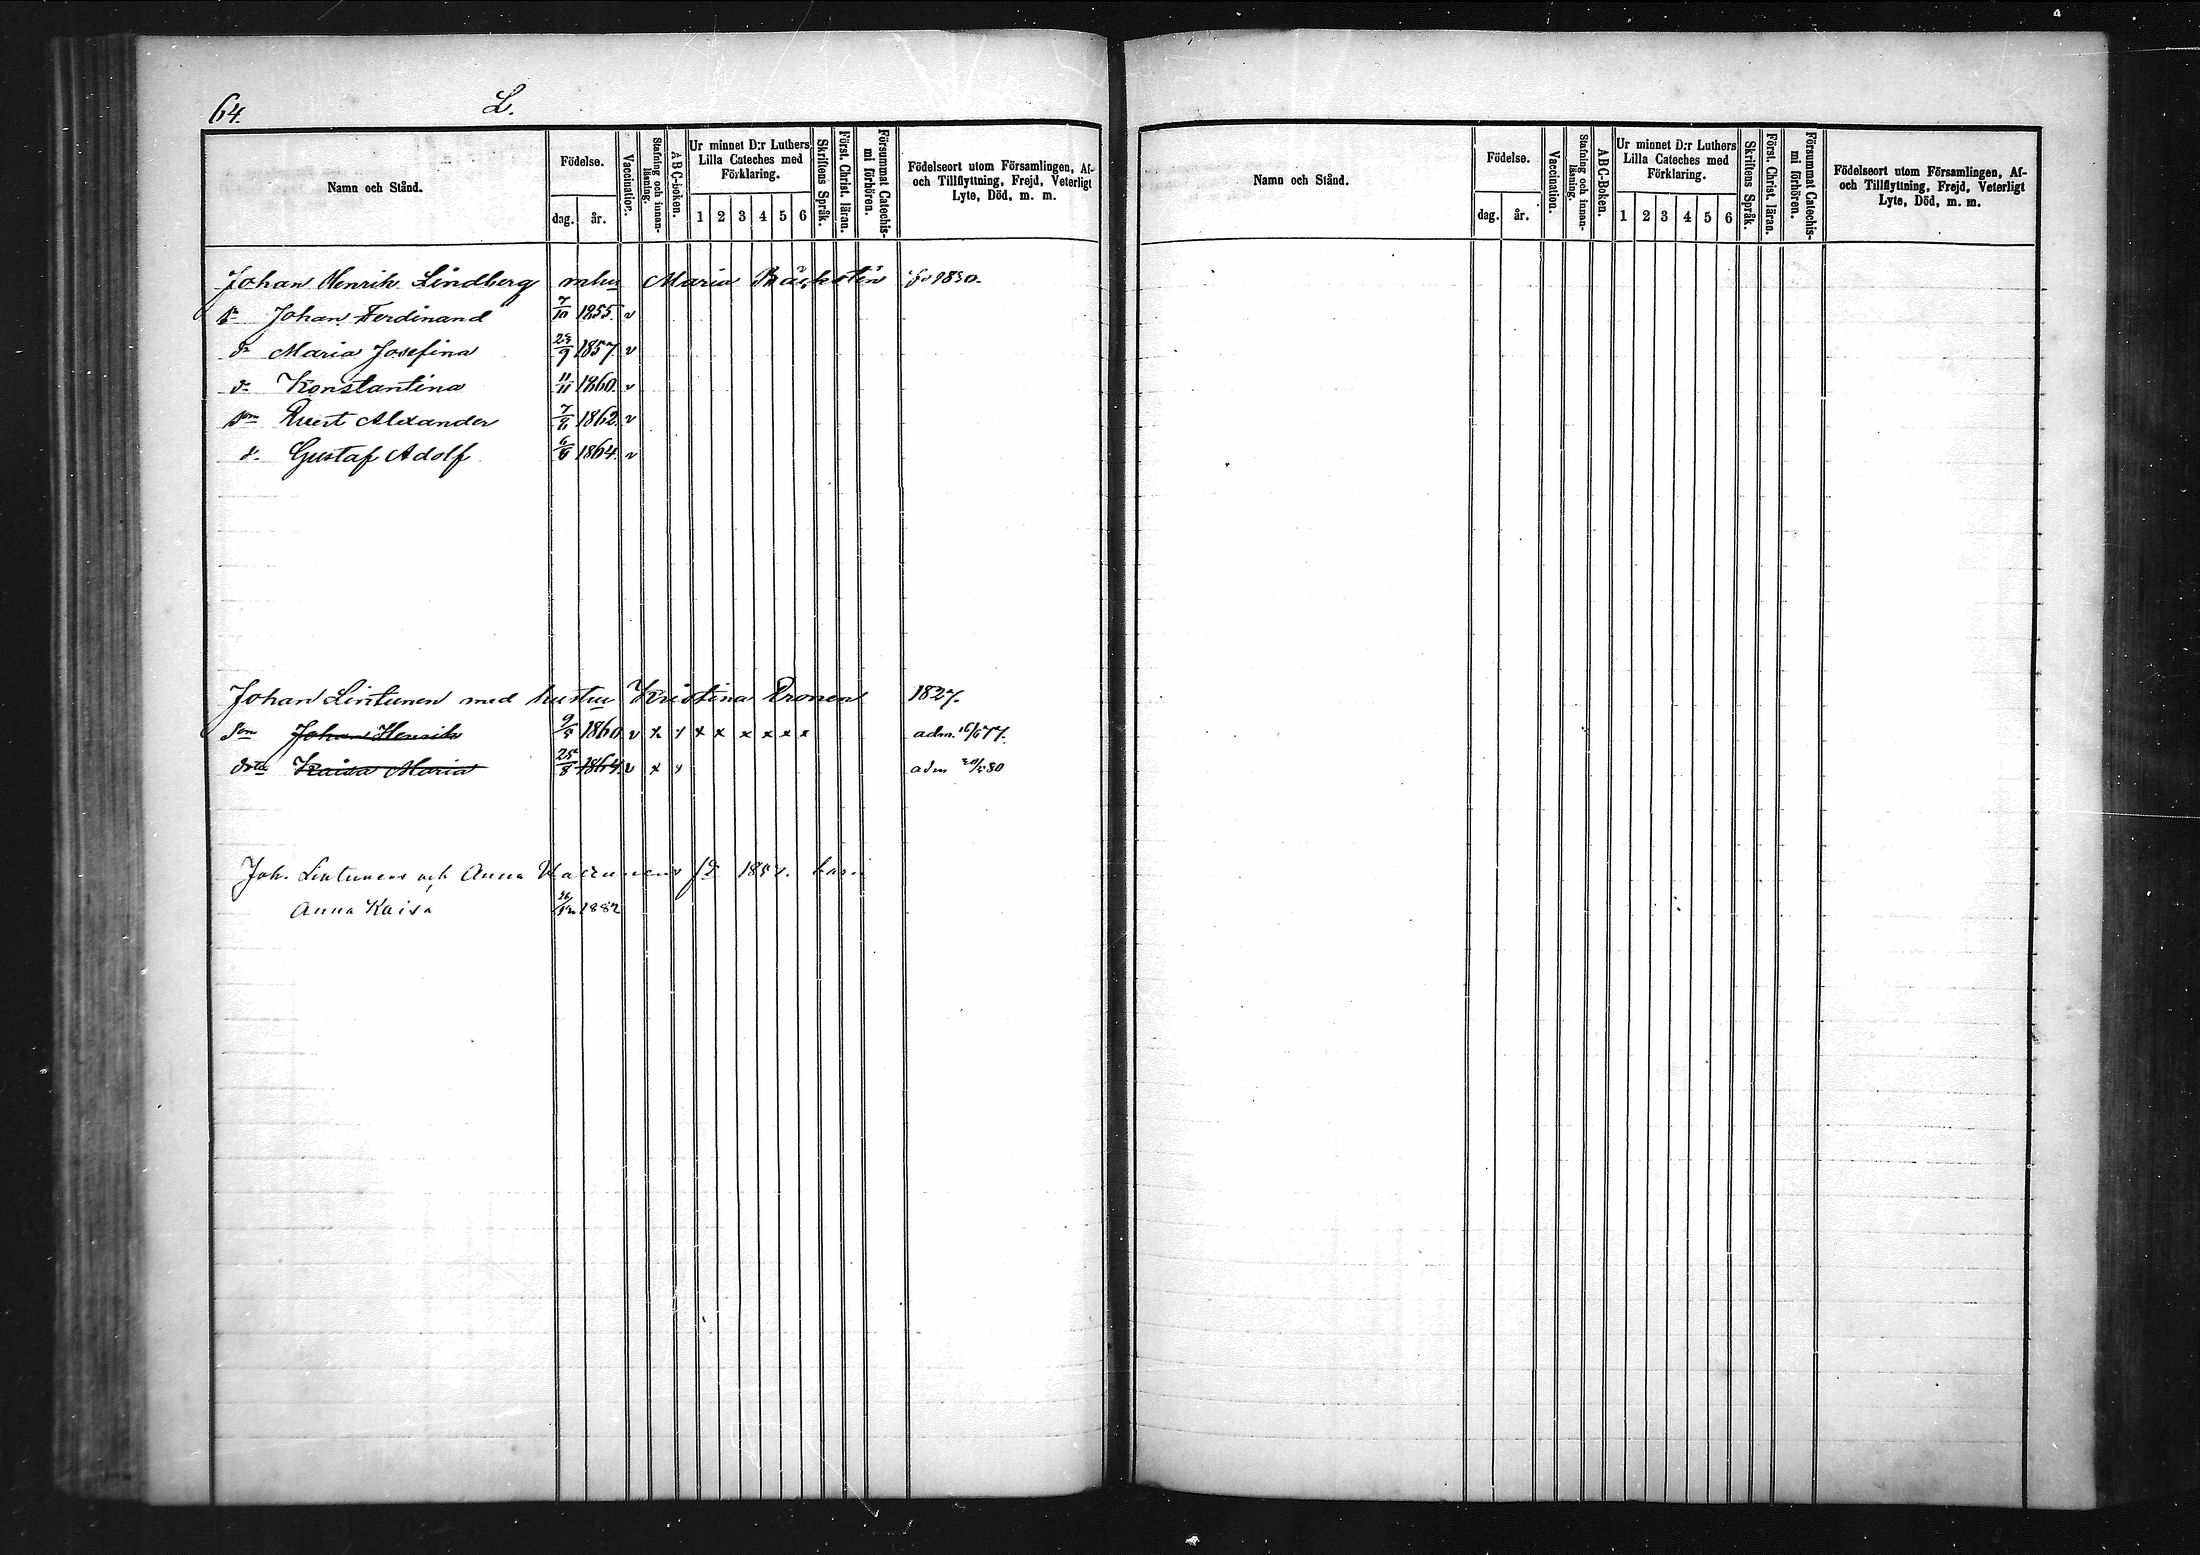 64.
L.
Namn och Stånd.
Födelse.
dag.
år.
Vaccination.
Stafning och innanläsning.
ABC-boken.
Ur minnet D:r Luthers
Lilla Cateches med
Förklaring.
1 2 3 4 5 6
Skriftens Språk.
Först. Christ. läran.
Försummat Catechismi förhören.
Födelseort utom Församlingen, Af-
och Tillflyttning, Frejd, Veterligt
Lyte, Död, m. m.
Johan Henrik Lindberg mhu Maria Bäckstén 1830.
Johan Ferdinand 7/10 1855. v
dr Maria Josefina 9 1857. v
dr Konstantina 11/11 1860. v
son Evert Alexander 1862. v
Gustaf Adolf 1864. v
Johan Lintunen med hustru Kristina 1827.
son Johan Henrik 9/8 1860 v x x x x x x x x adm. 16/6 77.
Kaisa Maria 25/8 1864. v x x adm 80
Joh. Lintunens och Anna barn
Anna Kaisa 1882
Namn och Stånd.
Födelse.
dag.
år.
Vaccination.
Stafning och innanläsning.
ABC-Boken.
Ur minnet D:r Luthers
Lilla Cateches med
Förklaring.
1 2 3 4 5 6
Skriftens Språk.
Först. Christ. läran.
Försummat Catechismi förhören.
Födelseort utom Församlingen, Af-
och Tillflyttning, Frejd, Veterligt
Lyte, Död, m. m.